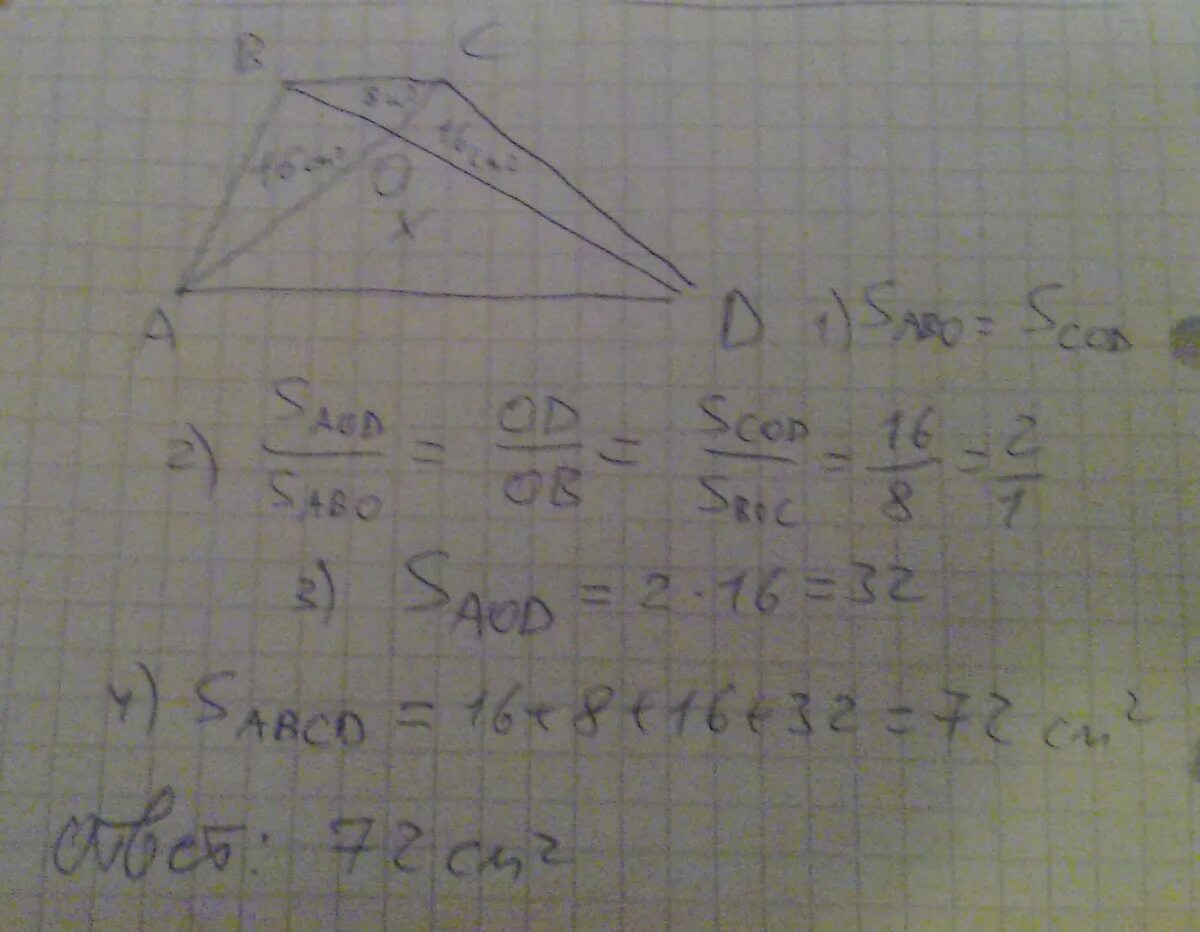 B C
8 см²
16 см² 16 см²
O
x
A D
1) S ABO = S COD
2) S AOD / S ABO = OD / OB = S COD / S BOC = 16 / 8 = 2 / 1
3) S AOD = 2 · 16 = 32
4) S ABCD = 16 + 8 + 16 + 32 = 72 см²
Ответ: 72 см²